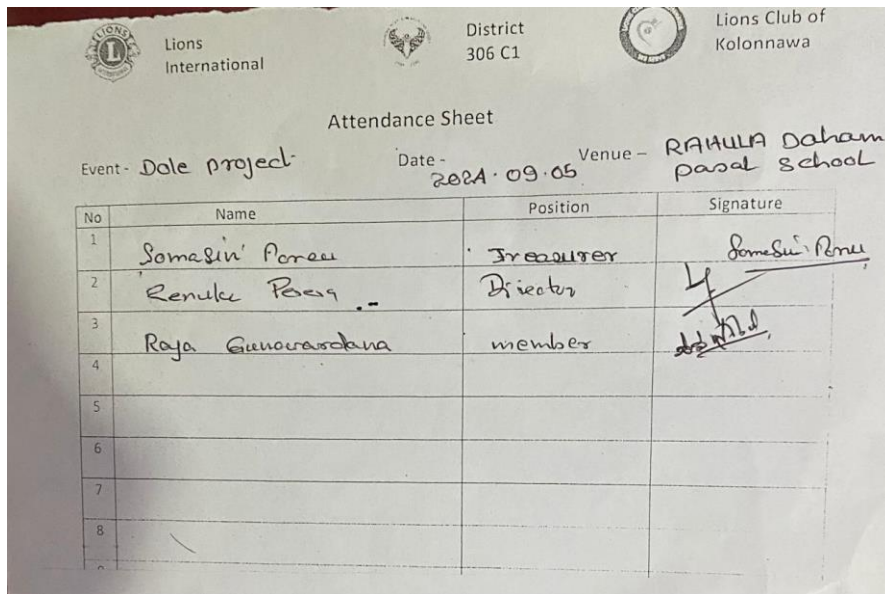 LIONS
L
INTERNATIONAL
Lions
International
District
306 C1
Lions Club of
Kolonnawa
Attendance Sheet
Event - Dole project
Date -
2024.09.05
Venue - RAHULA Daham
pasal school
No Name Position Signature
1 Somasiri Treasurer
2 Renuke Perera Director
3 Raja Gunawardana member
4
5
6
7
8